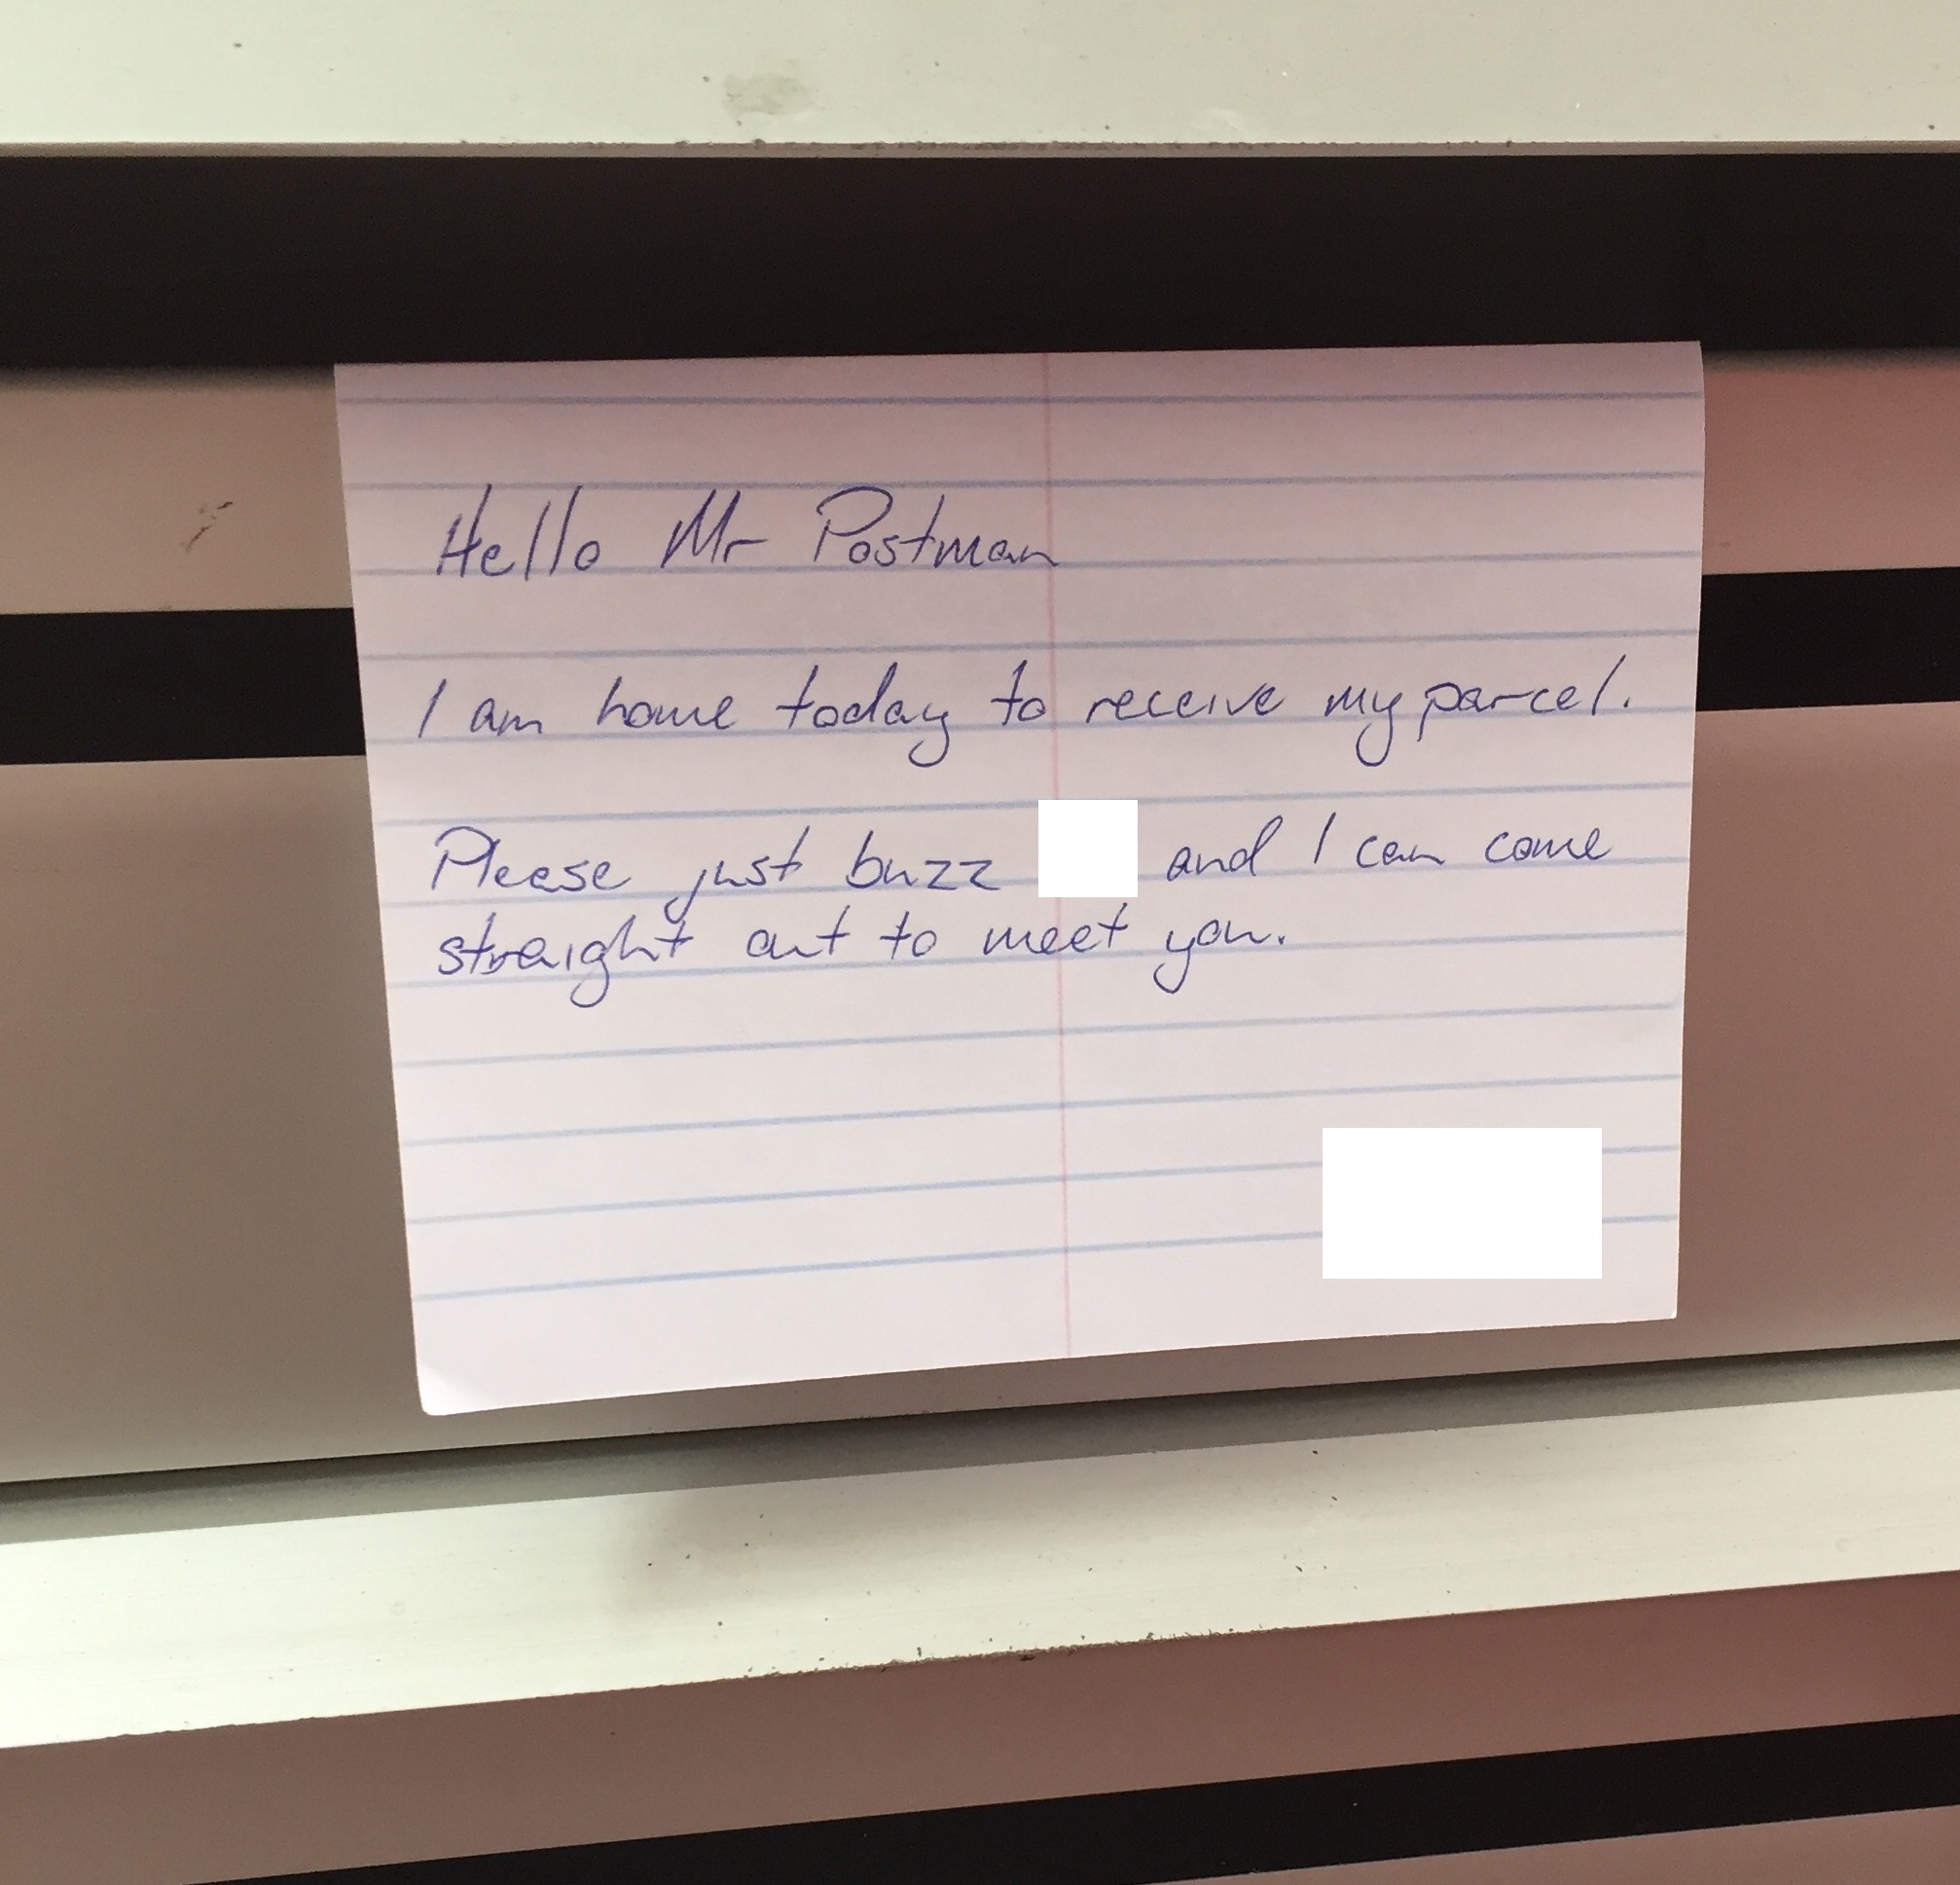 Hello Mr Postman
I am home today to receive my parcel.
Please just buzz and I can come
straight out to meet you.